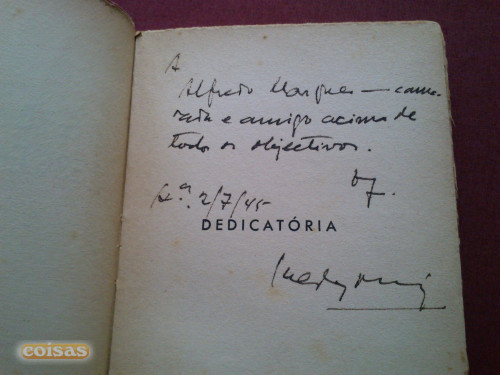 A
Alfredo Marques — cama-
rada e amigo acima de
todos os objectivos.
2/7/45
DEDICATÓRIA
coisas